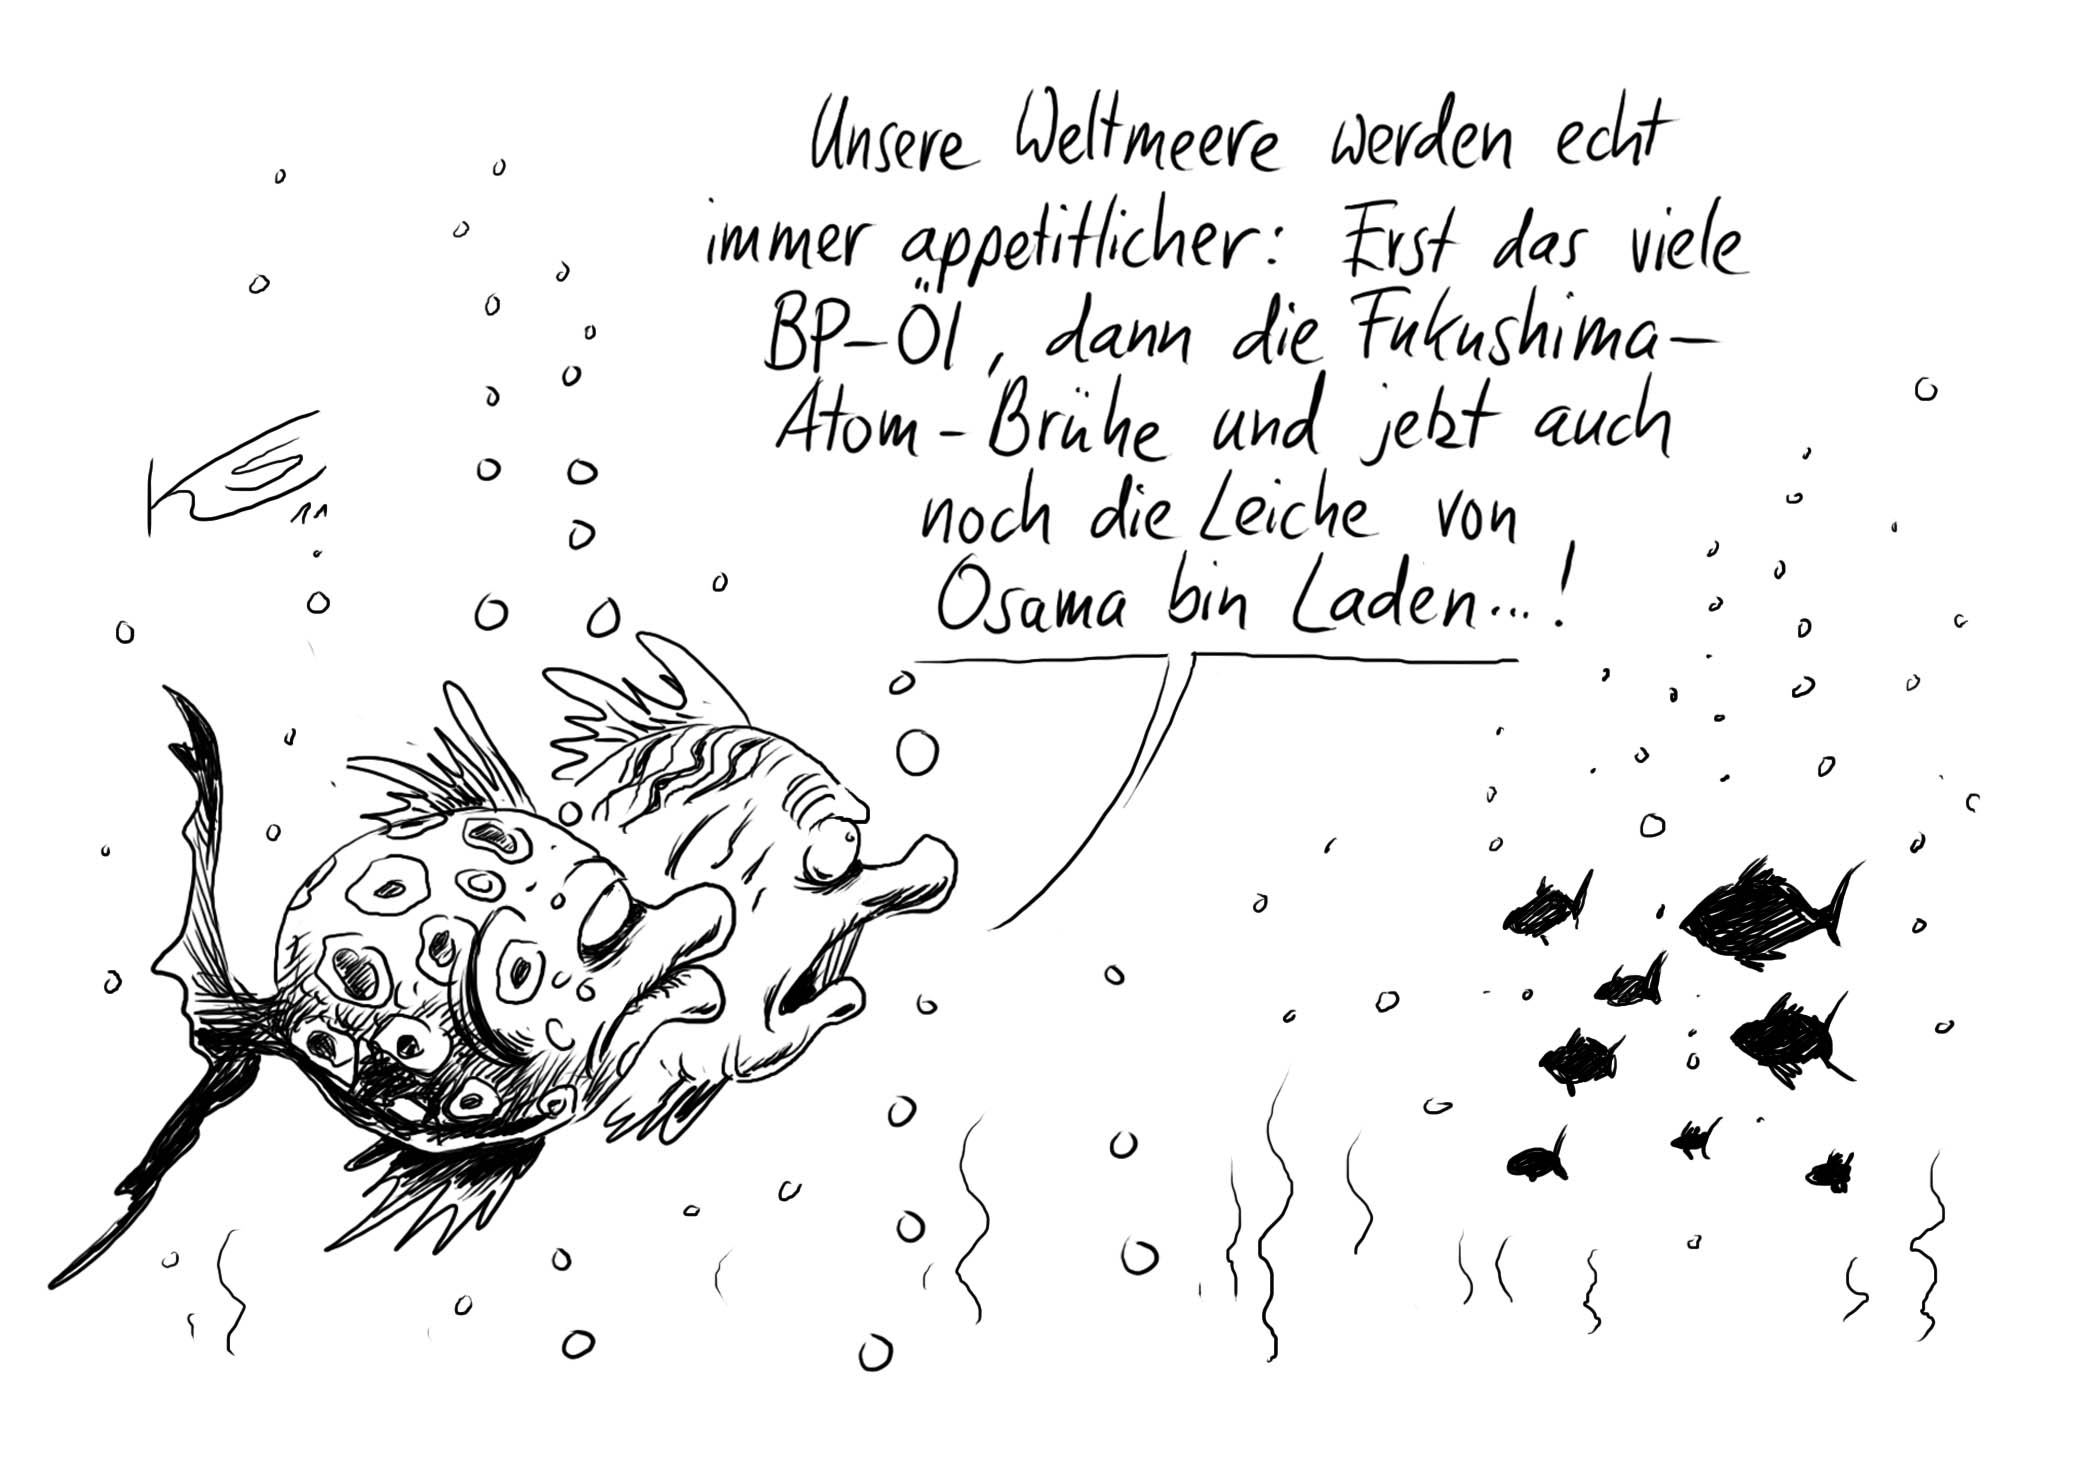 Unsere Weltmeere werden echt
immer appetitlicher: Erst das viele
BP-Öl, dann die Fukushima-
Atom-Brühe und jetzt auch
noch die Leiche von
Osama bin Laden...!
11